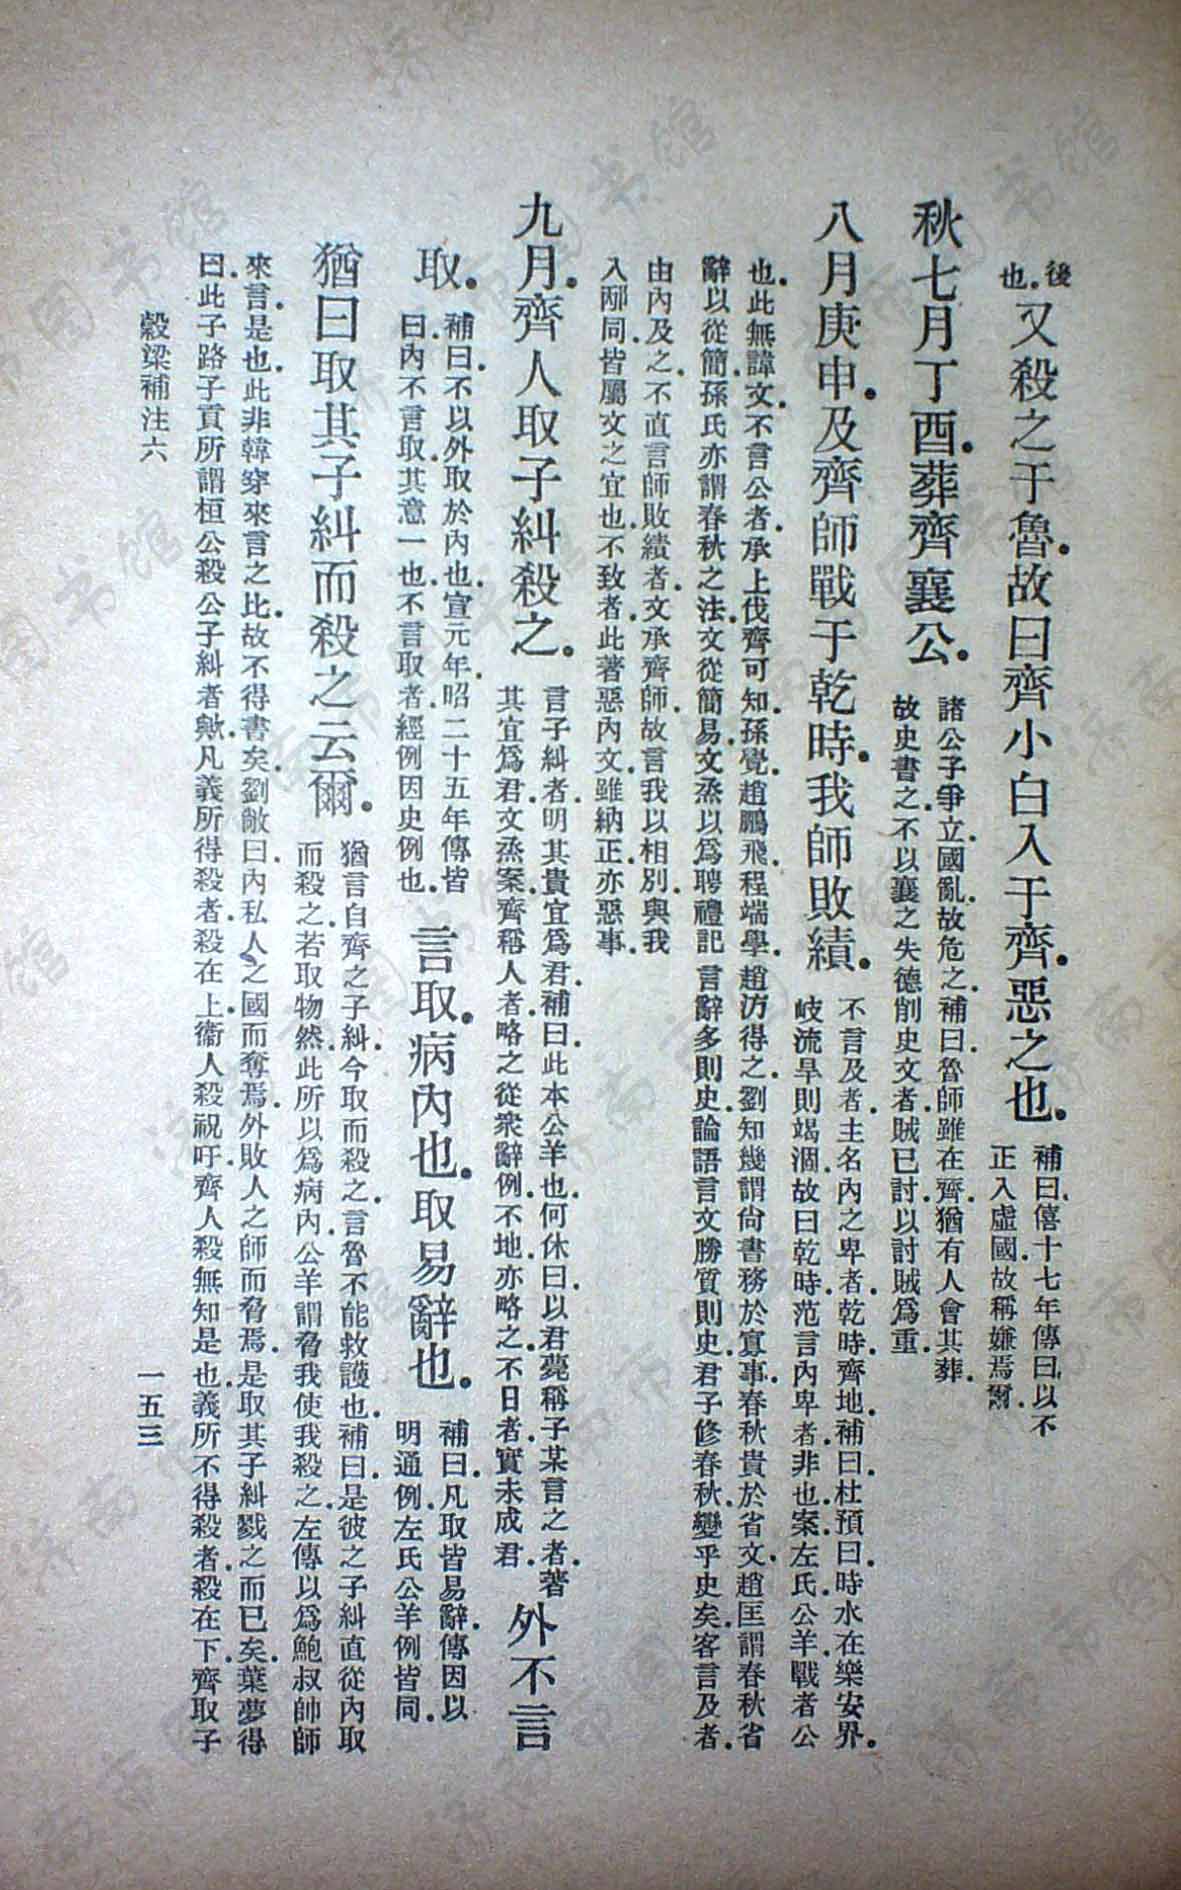 後
也。又殺之于魯。故曰齊小白入于齊。惡之也。補曰。僖十七年傳曰。以不
正入虛國。故稱嫌焉爾。
秋七月丁酉。葬齊襄公。諸公子爭立。國亂。故危之。補曰。魯師雖在齊。猶有人會其葬。
故史書之。不以襄之失德削史文者。賊已討。以討賊爲重。
八月庚申。及齊師戰于乾時。我師敗績。不言及者。主名內之卑者。乾時。齊地。補曰。杜預曰。時水在樂安界。
岐流。旱則竭涸。故曰乾時。范言內卑者。非也。案左氏公羊。戰者公
也。此無諱文。不言公者。承上伐齊可知。孫覺趙鵬飛程端學趙汸得之。劉知幾謂尙書務於寡事。春秋貴於省文。趙匡謂春秋省
辭以從簡。孫氏亦謂春秋之法。文從簡易。文烝以爲聘禮記言辭多則史。論語言文勝質則史。君子修春秋。變乎史矣。客言及者。
由內及之。不直言師敗績者。文承齊師。故言我以相別。與我
入邴同。皆屬文之宜也。不致者。此著惡內文。雖納正。亦惡事。
九月。齊人取子糾殺之。言子糾者。明其貴宜爲君。補曰。此本公羊也。何休曰。以君薨稱子某言之者。著
其宜爲君。文烝案。齊稱人者。略之從衆辭例。不地。亦略之。不日者。實未成君。外不言
取。補曰。不以外取於內也。宣元年昭二十五年傳皆
曰。內不言取。其意一也。不言取者。經例因史例也。言取。病內也。取。易辭也。補曰。凡取皆易辭。傳因以
明通例。左氏公羊例皆同。
猶曰取其子糾而殺之云爾。猶言自齊之子糾。今取而殺之。言魯不能救護也。補曰。是彼之子糾。直從內取
而殺之。若取物然。此所以爲病內。公羊謂脅我使我殺之。左傳以爲鮑叔帥師
來言是也。此非韓穿來言之比。故不得書矣。劉敞曰。內私人之國而奪焉。外敗人之師而脅焉。是取其子糾戮之而已矣。葉夢得
曰。此子路子貢所謂桓公殺公子糾者歟。凡義所得殺者。殺在上。衞人殺祝吁齊人殺無知是也。義所不得殺者。殺在下。齊取子
穀梁補注六
一五三